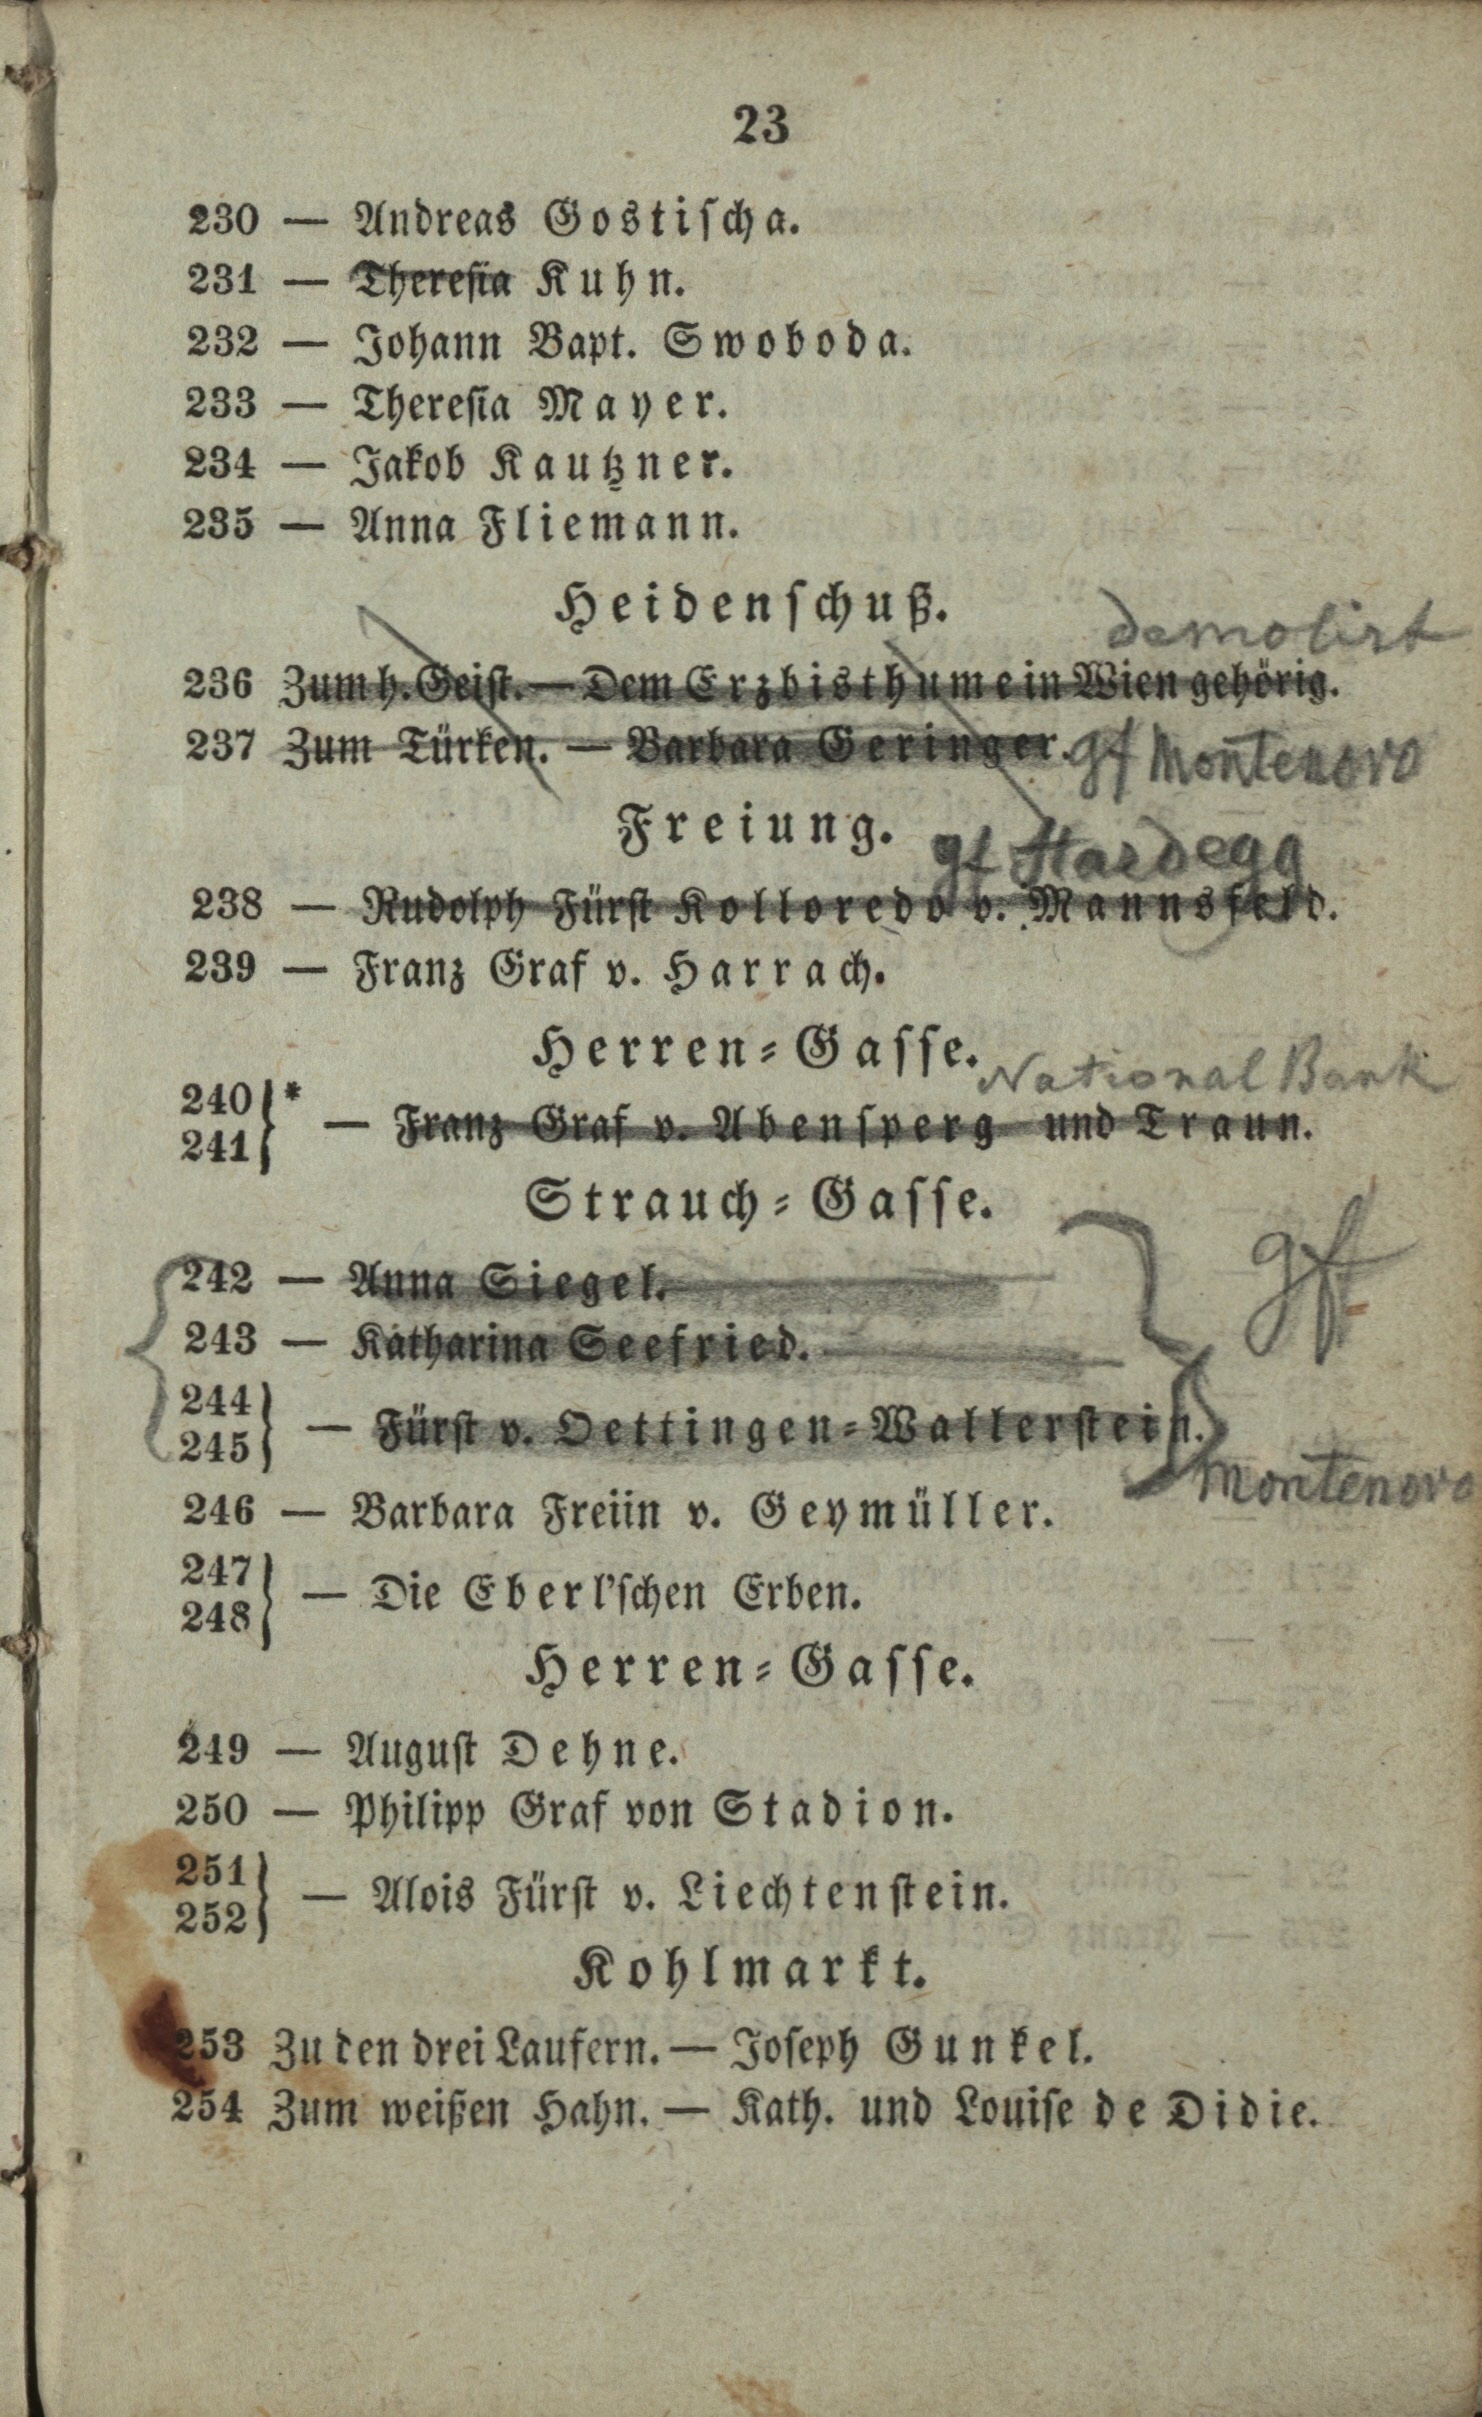 23
230 — Andreas Gostischa.
231 — Theresia Kuhn.
232 — Johann Bapt. Swoboda.
233 — Theresia Mayer.
234 — Jakob Kautzner.
235 — Anna Fliemann.
Heidenschuß.
demolirt
236 Zum h. Geist. — Dem Erzbisthume in Wien gehörig.
237 Zum Türken. — Barbara Geringer. gf Montenovo
Freiung.
gf Hardegg
238 — Rudolph Fürst Kolloredo v. Mannsfeld.
239 — Franz Graf v. Harrach.
Herren-Gasse.
National Bank
240 }*
241 } — Franz Graf v. Abensperg und Traun.
Strauch-Gasse.
gf
242 — Anna Siegel.
243 — Katharina Seefried.
244 }
245 } — Fürst v. Oettingen-Wallerstein.
Montenovo
246 — Barbara Freiin v. Geymüller.
247 }
248 } — Die Eberl'schen Erben.
Herren-Gasse.
249 — August Dehne.
250 — Philipp Graf von Stadion.
251 }
252 } — Alois Fürst v. Liechtenstein.
Kohlmarkt.
253 Zu den drei Laufern. — Joseph Gunkel.
254 Zum weißen Hahn. — Kath. und Louise de Didie.